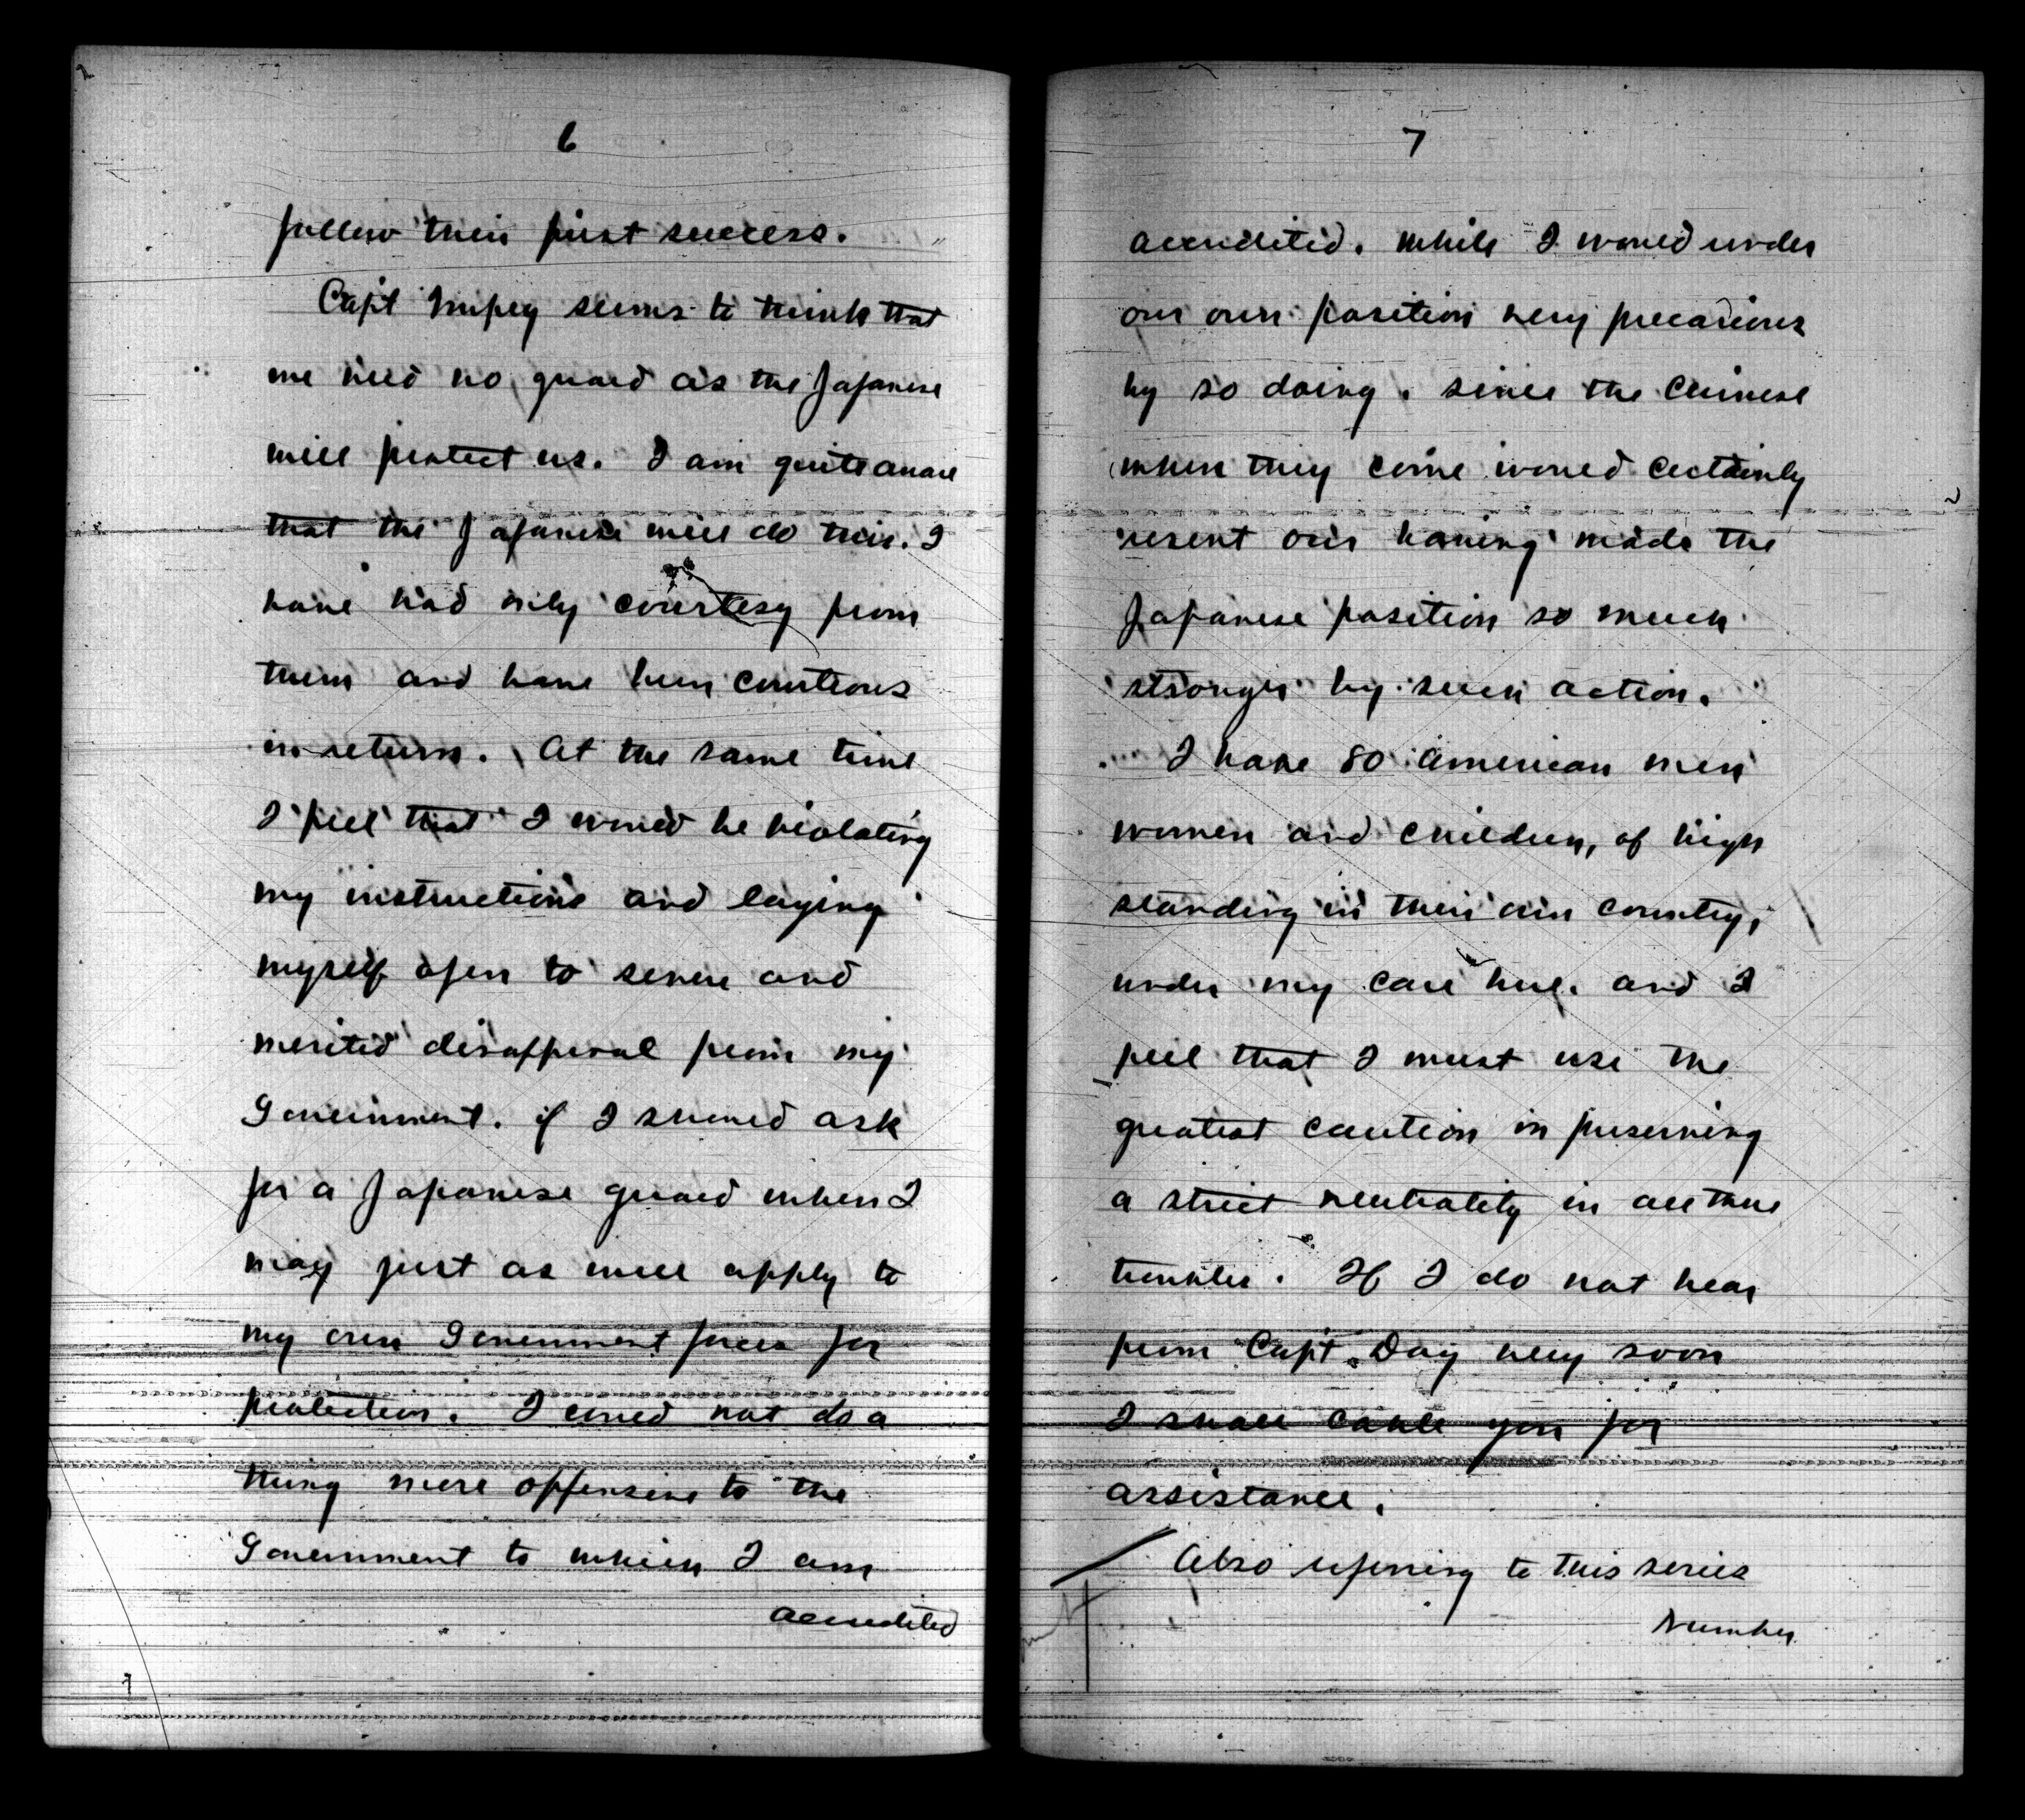 6
follow their first success.
Capt Impey seems to think that
we need no guard as the Japanese
will protect us. I am quite aware
that the Japanese will do this. I
have had only courtesy from
them and have been courteous
in return. At the same time
I feel that I would be violating
my instructions and laying
myself open to severe and
merited disapproval from my
Government. if I should ask
for a Japanese guard when I
may just as well apply to
my own Government forces for
protection. I could not do a
thing more offensive to the
Government to which I am
accredited
7
accredited. while I would under
our own position very precarious
by so doing. since the Chinese
when they come would certainly
resent our having made the
Japanese position so much
stronger by such action.
I have 80 American men
women and children, of high
standing in their own country,
under my care here. and I
feel that I must use the
greatest caution in preserving
a strict neutrality in all these
troubles. If I do not hear
from Capt. Day very soon
I shall cable you for
assistance.
Also referring to this series
Number